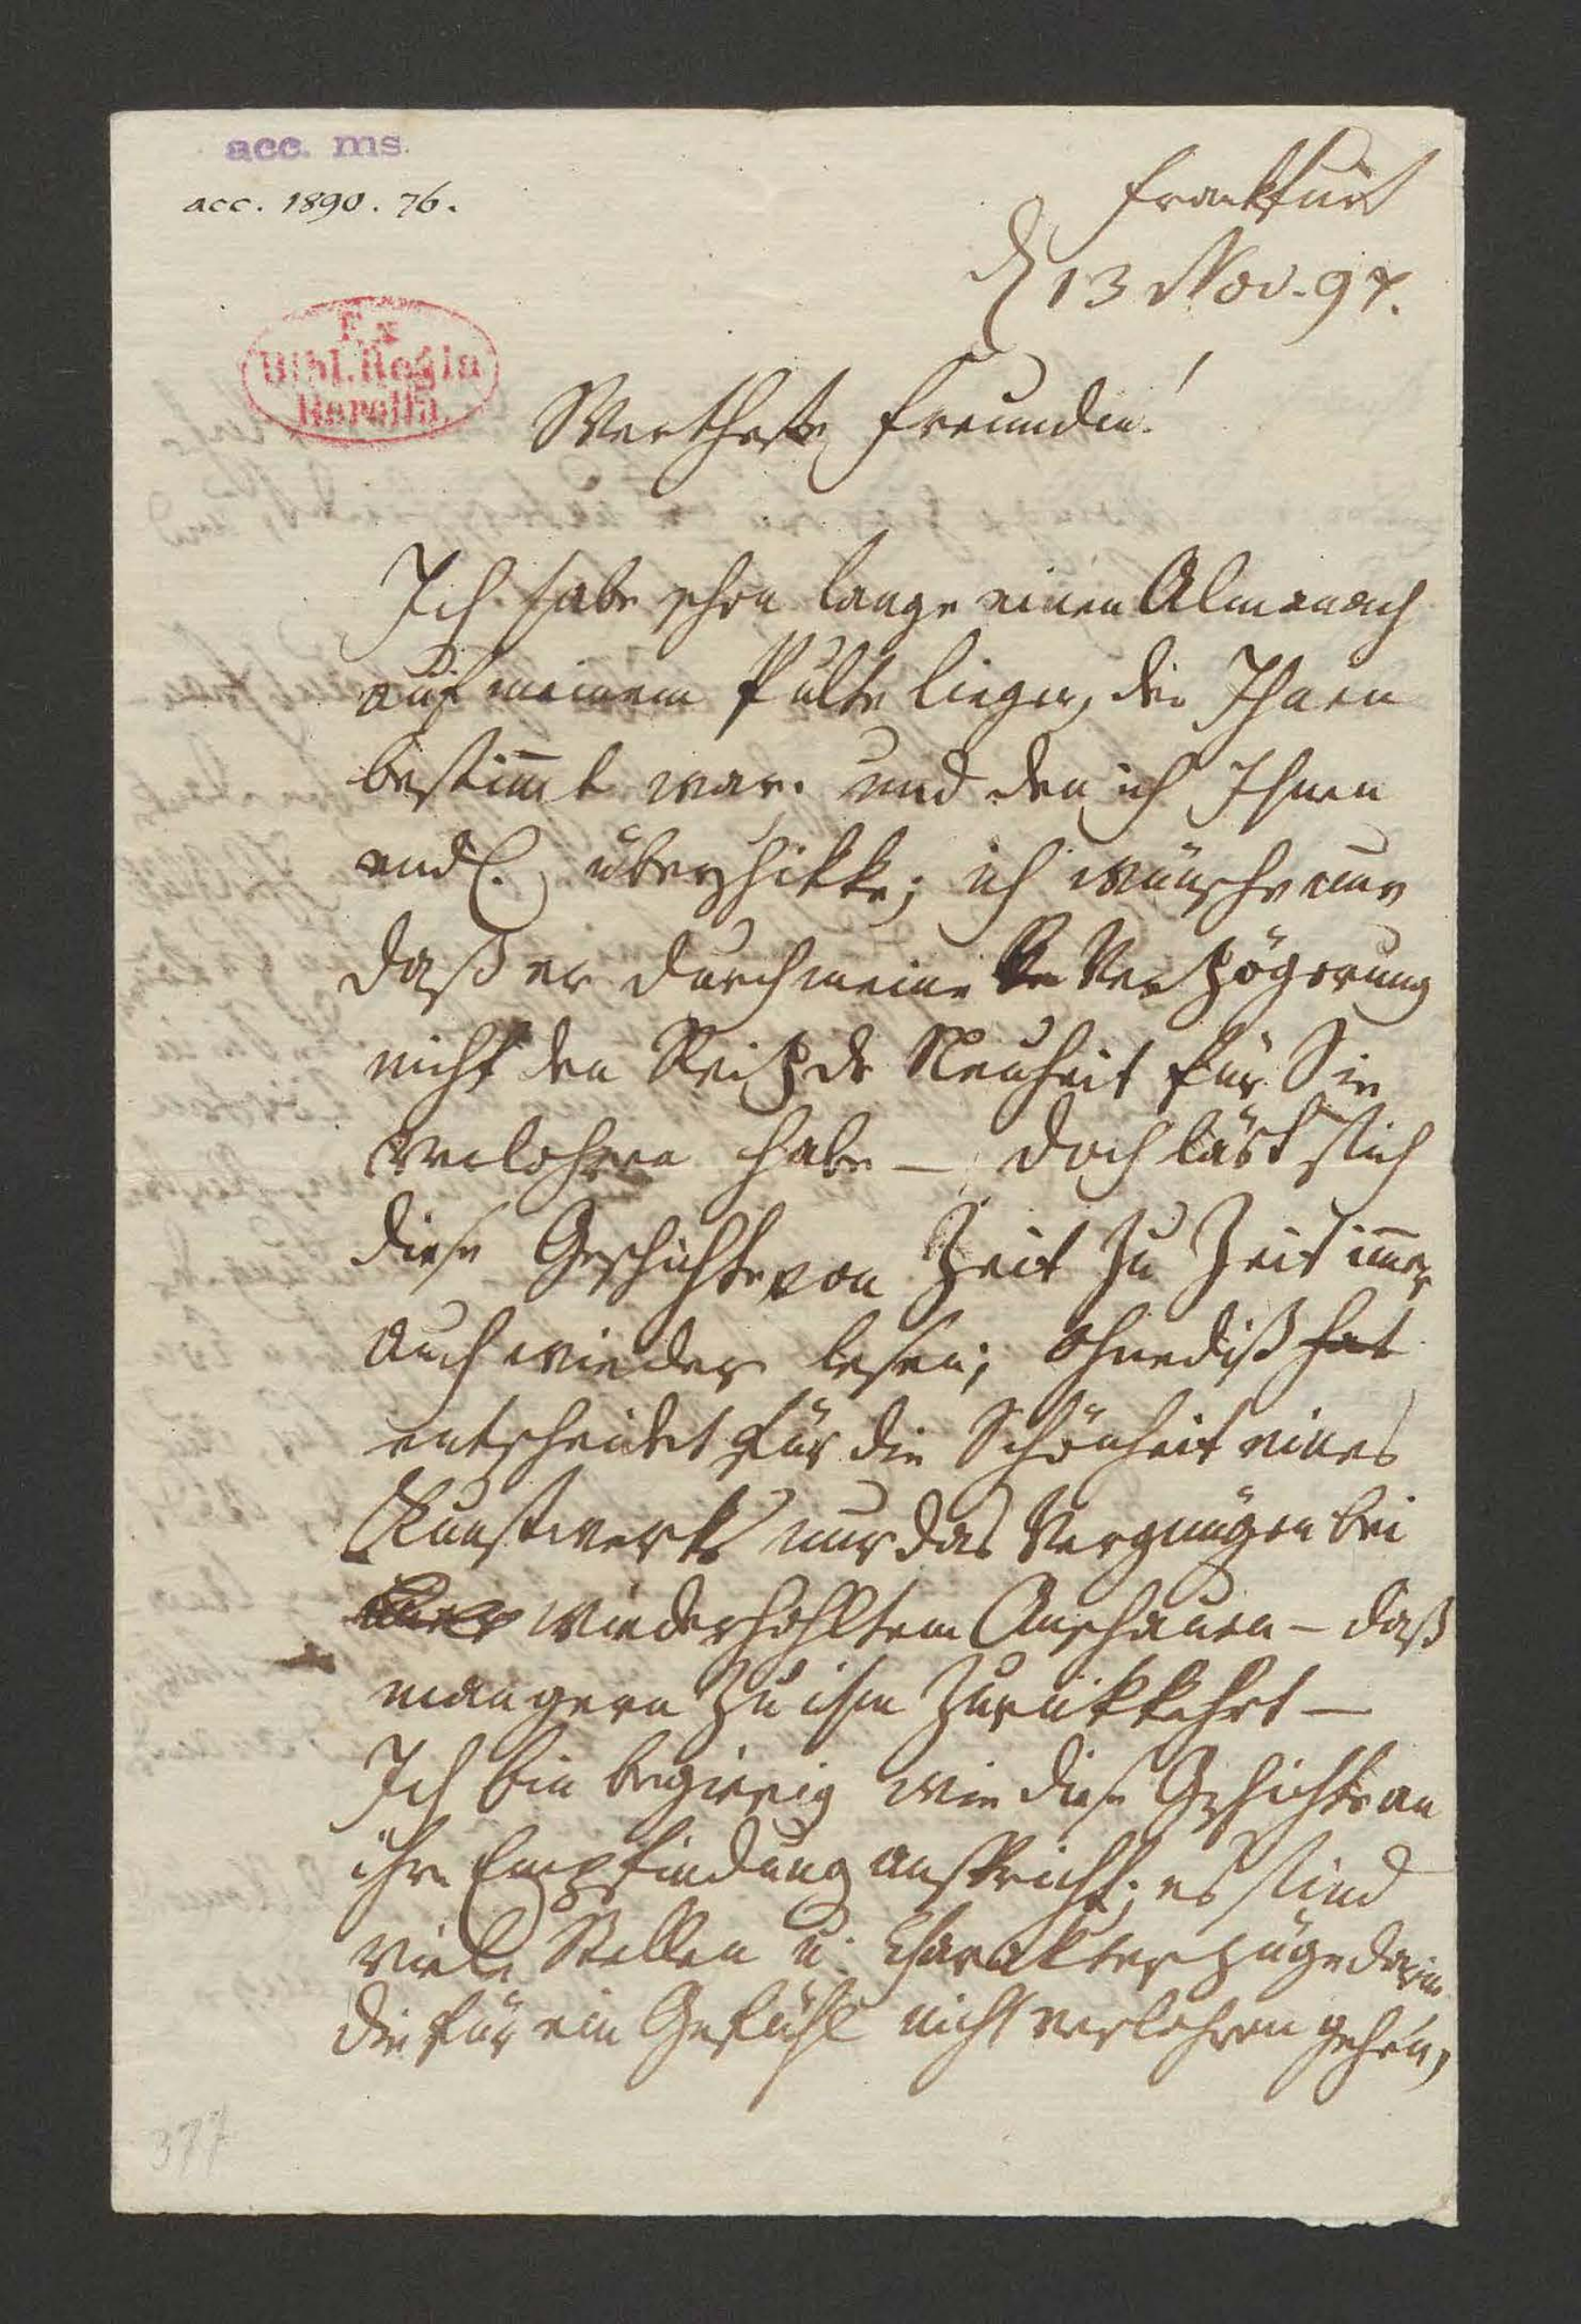 acc. ms.
acc. 1890. 76.
Frankfurt
d 13 Nov. 97.
Ex
Bibl. Regia
Berolin.
Wertheste Freundin!
Ich habe schon lange einen Almanach
auf meinem Pulte liegen, der Ihnen
bestim̄t war. und den ich Ihnen
endl. überschikke; ich wünsche nur
daß er durch meine Ver Verzögerung
nicht den Reitz der Neuheit für Sie
verlohren habe — doch läst sich
diese Geschichte von Zeit zu Zeit im̄er
auch wieder lesen; ohnediß hat
entscheidet für die Schönheit eines
Kunstwerks nur das Vergnügen bei
wiederhohltem Anschauen — daß
man gern zu ihm zurükkehrt —
Ich bin begierig wie diese Geschichte an
ihre Empfindung anspricht; es sind
viele Stellen u. Charakterzüge darin
die für ein Gefühl nicht verlohren gehen,
377